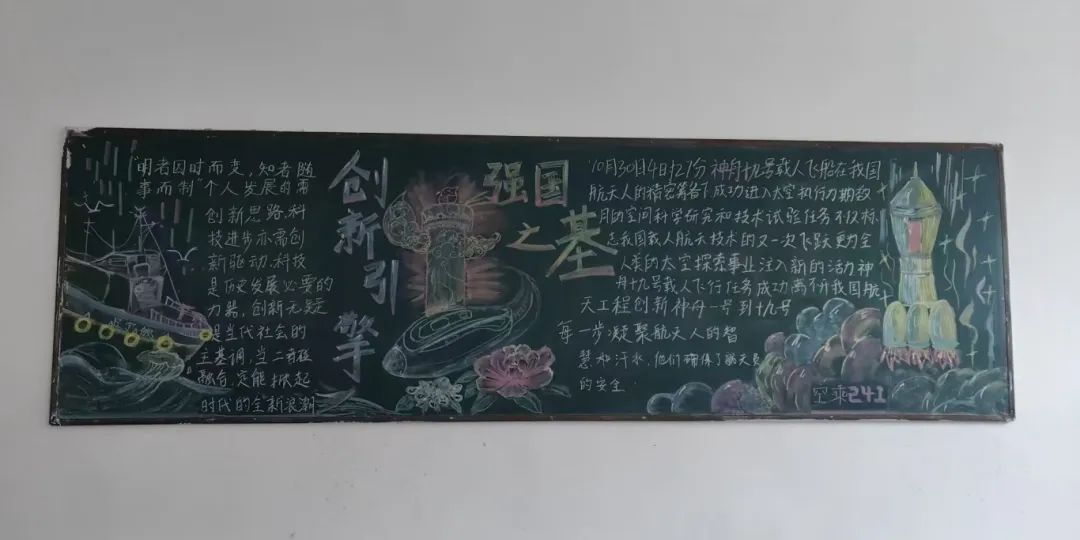 "明者因时而变，知者随
事而制"个人发展的需
创新思路，科
技进步亦需创
新驱动，科技
是历史发展必要的
力器，创新无疑
是当代社会的
主基调，当二者
融合，定能掀起
时代的全新浪潮
创新引擎
强国
之基
10月30日4时27分神舟十九号载人飞船在我国
航天人的精密筹备下成功进入太空执行为期数
月的空间科学研究和技术试验任务不仅标
志我国载人航天技术的又一次飞跃更为全
人类的太空探索事业注入新的活力神
舟十九号载人飞行任务成功离不开我国航
天工程创新神舟一号到十九号
每一步凝聚航天人的智
慧和汗水，他们确保了航天员
的安全
空乘241